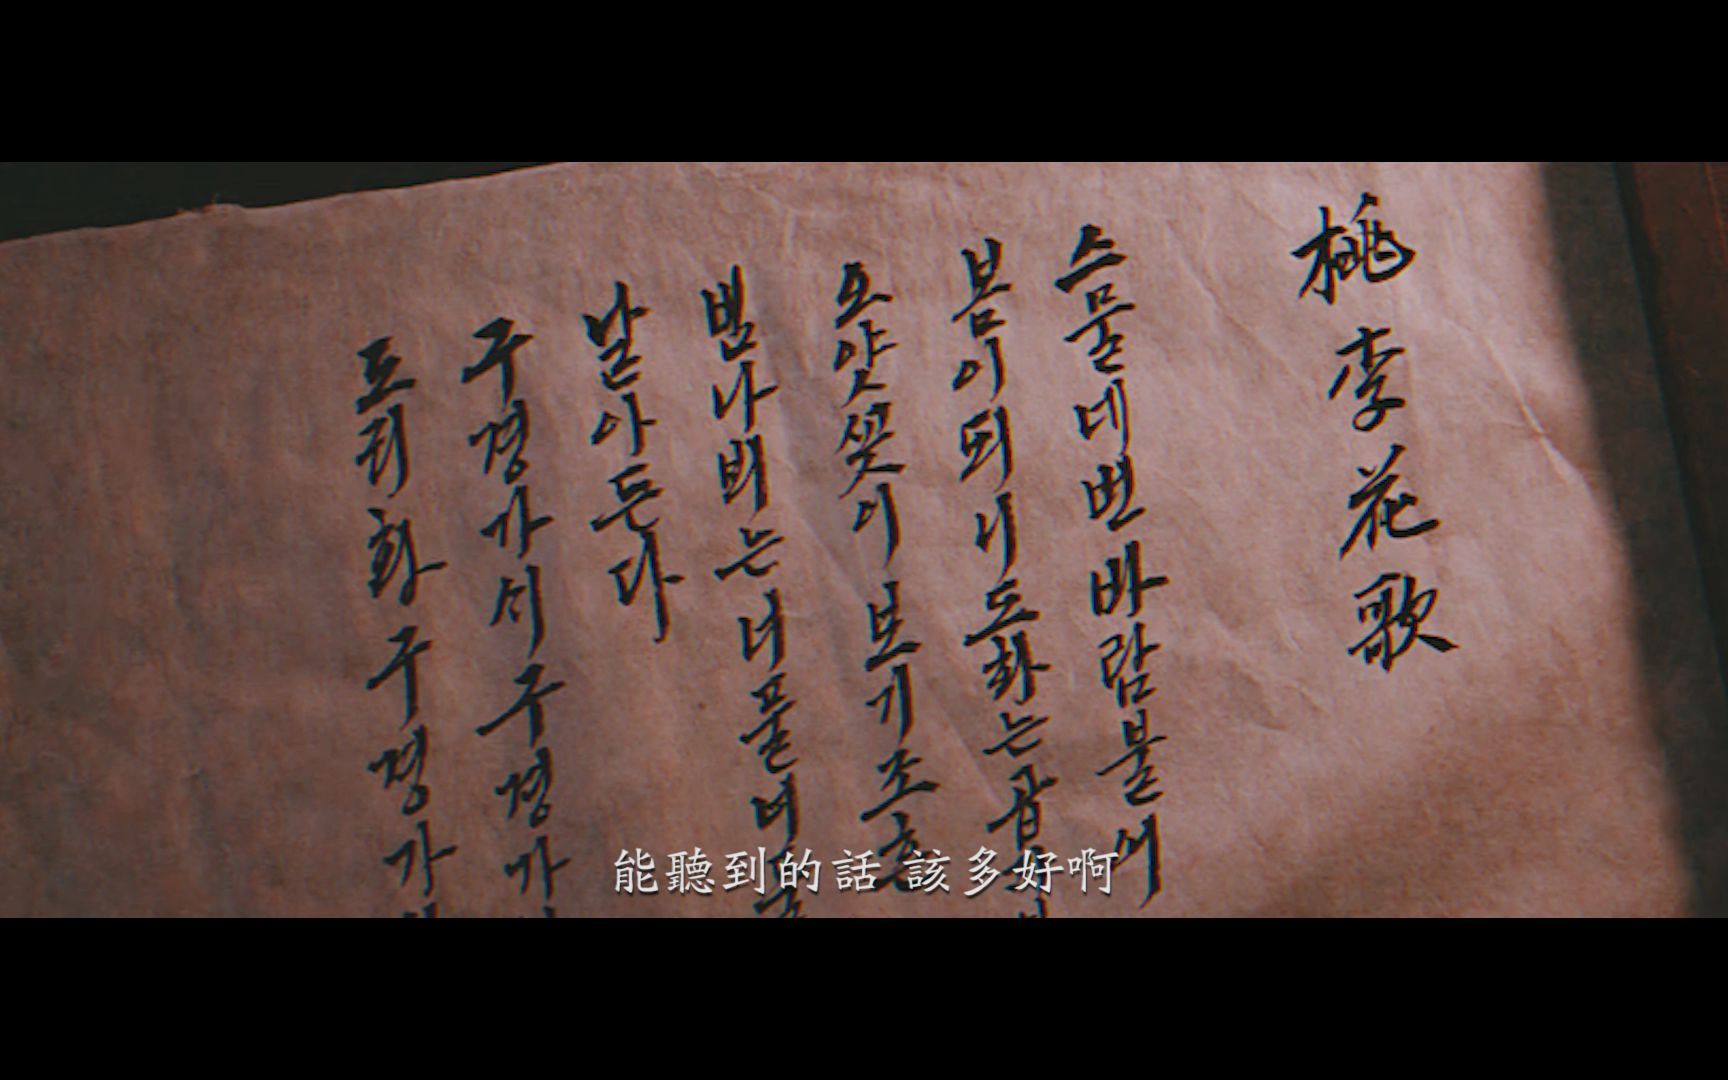 桃李花歌
스물네번바람불서
봄이되니도화는곱
오얏꽃이보기조흔
범나비는너풀너풀
날아든다
구경가시구경가
도리화구경가
能聽到的話 該多好啊